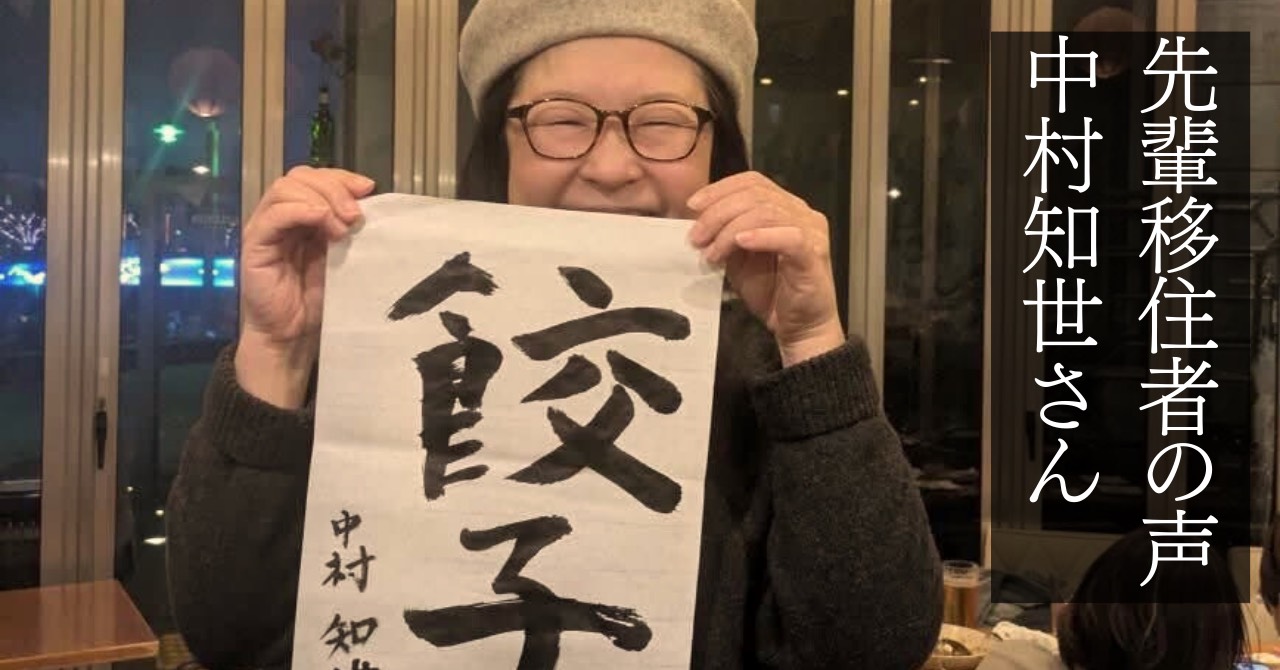 先輩移住者の声
中村知世さん
餃子
中村 知